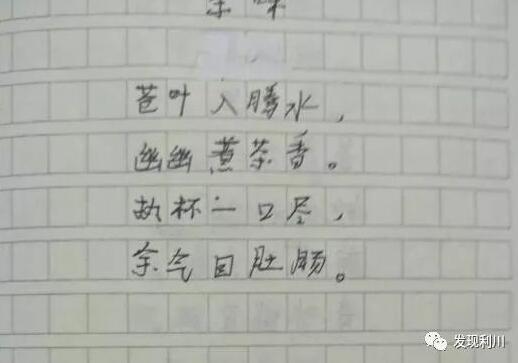 苍叶入腾水，
幽幽煮茶香。
执杯一口尽，
余气回肚肠。
发现利川